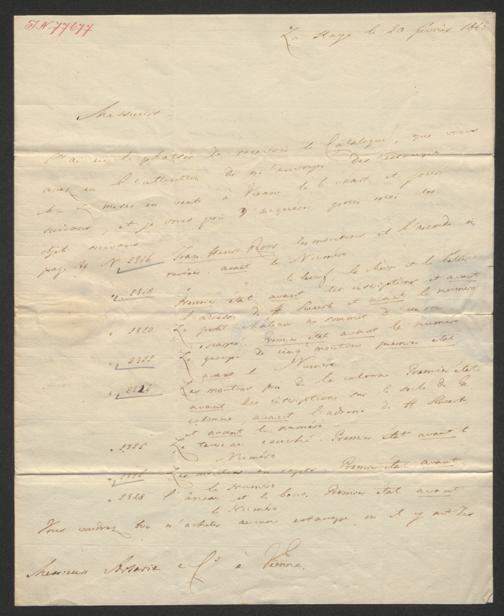 I.N. 77677
La Haye le 20 février
Messieurs
J'ai eu le plaisir de recevoir le Catalogue, que vous
avez eu l'attention de m'envoyer des estampes
mises en vente à Vienne le 6 mars et jours
suivans, et je vous prie d'acquérir pour moi les
objets suivans
page 84 No 2816 Jean Henri Roos les moutons et l'
avant le Numéro
" 2818 " le boeuf, le bouc et le bélier
Premier état avant les inscriptions et avant
l'adresse de H et avant le numéro
" 2820 Le petit château au sommet d'un
Premier état avant le numéro
Le groupe de cinq moutons premier état
avant le Numéro
Les moutons près de la colonne Premier état
avant les inscriptions sur le socle de la
colonne avant l'adresse de H
et avant le numéro
Le taureau couché Premier état avant l
Numéro
Les moutons en repos Premier état avant
le Numéro
" 2828 l'ânesse et le bouc. Premier état avant
le Numéro
Vous voudrez bien m'acheter aucune estampe, où il y ait des
Messieurs Artaria & Co à Vienne.